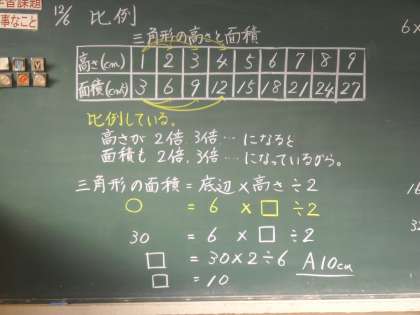 習課題
事なこと
12/6 比例
三角形の高さと面積
高さ(cm) 1 2 3 4 5 6 7 8 9
面積(cm²) 3 6 9 12 15 18 21 24 27
比例している。
高さが 2倍、3倍… になると
面積も 2倍、3倍… になっているから。
三角形の面積 = 底辺 × 高さ ÷2
○ = 6 × □ ÷2
30 = 6 × □ ÷2
□ = 30×2÷6 A10cm
□ = 10
6×
16
32